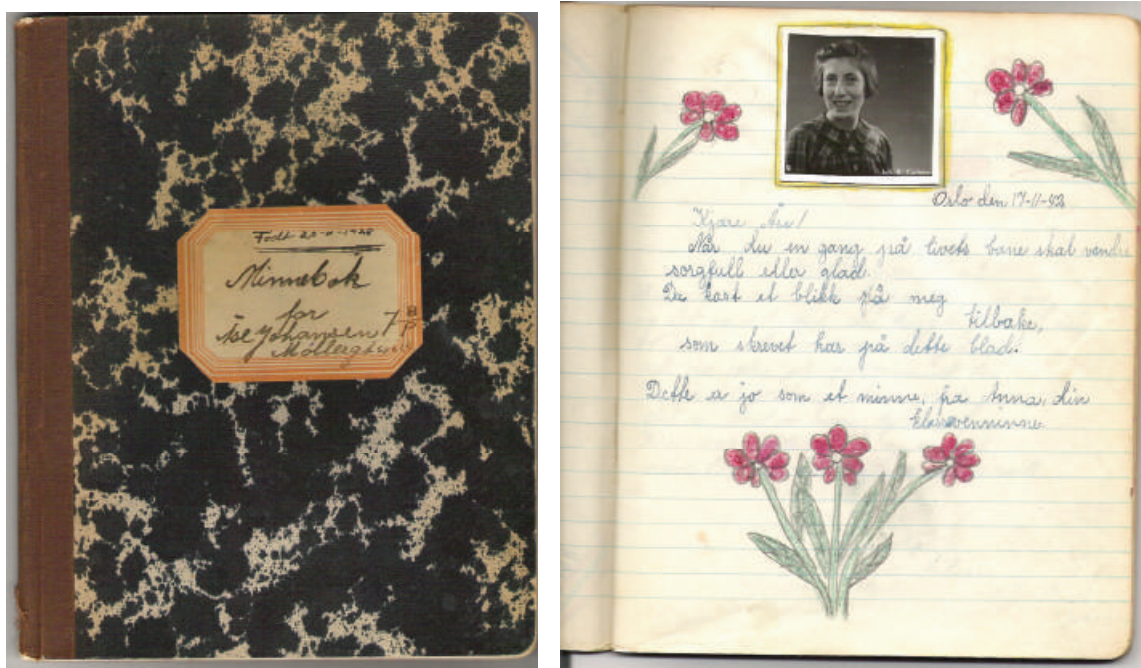 Født 20-11-1928
Minnebok
for
Åse Johansen 7 B P
Møllergaten
Oslo den 17-11-42
Kjære Åse!
Når du en gang på livets bane skal vandre
sorgfull eller glad.
Da kast et blikk på meg
tilbake,
som skrevet har på dette blad.
Dette er jo som et minne, fra Anna, din
klassevenninne